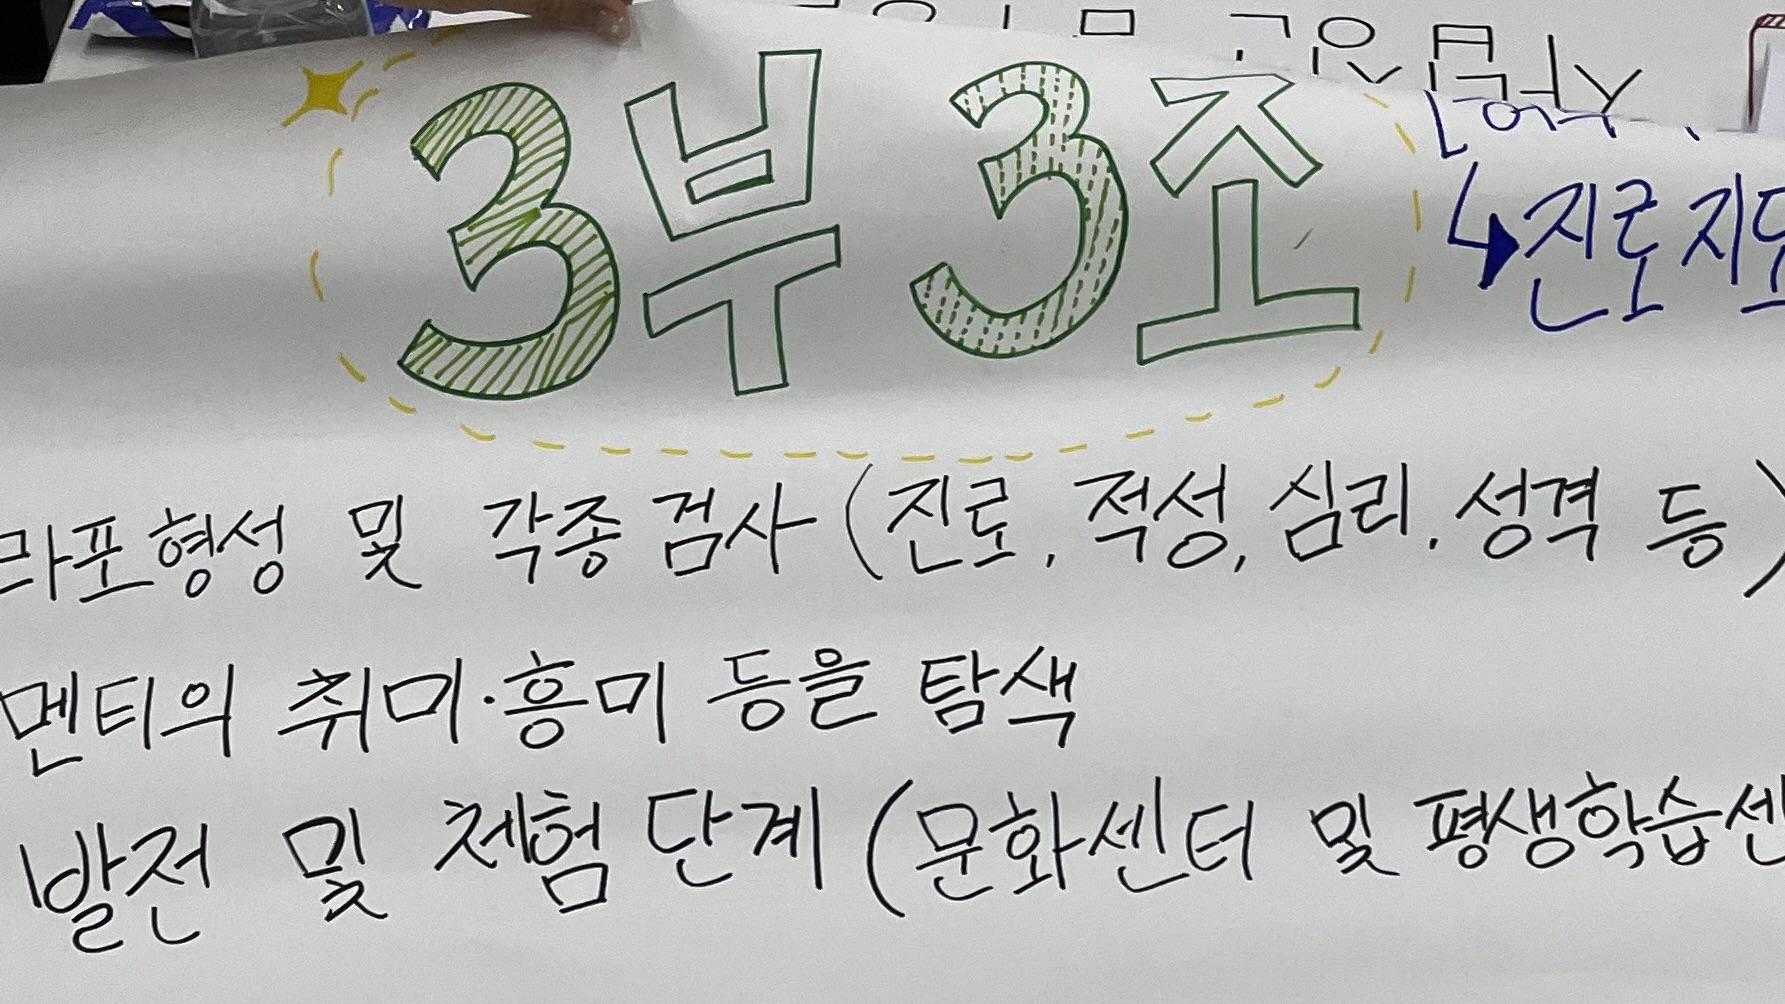 3부 3조
진로지도
라포형성 및 각종검사 (진로, 적성, 심리, 성격 등)
멘티의 취미·흥미 등을 탐색
발전 및 체험단계 (문화센터 및 평생학습센